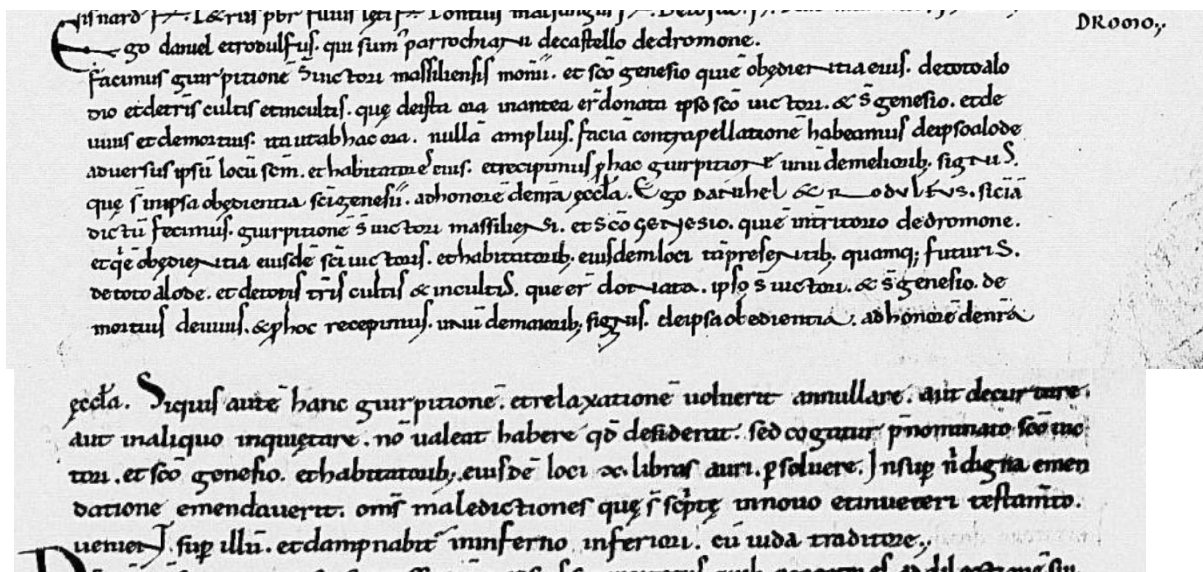 DROMO.,
Ego daniel et rodulfus. qui sum' parrochiani de castello de dromone.
facimus guirpitionē S̄ uictori massiliensis monii. et sc̄o genesio qui ē obędientia eius. de toto alo
dio et de tr̄is cultis et incultis. quę de ista ora inantea er̄ donata ipso sc̄o uictori. & S̄ genesio. et de
uiuis et de mortuis. ita ut ab hac ora. nullā amplius. faciā contrapellationē habeamus de ipso alode
adversus ipsū locū sc̄m. et habitatores eius. et recipimus p hac guirpitione unū de meliorib; signis.
quę s̄ in ipsa obędientia sc̄i genesii. ad honorē de nr̄a ęccła. Ego Daruhel & Rodulfus. sic iā
dictū fecimus. guirpitionē S̄ uictori massiliensi. et sc̄o genesio. qui ē in tr̄itorio de dromone.
et q̄ ē obędientia eiusdē sc̄i uictoris. et habitatorib; eiusdem loci tā presentib; quamq; futuris.
de toto alode. et de totis tr̄is cultis & incultis. que er̄ donata. ipso S̄ uictori. & S̄ genesio. de
mortuis de uiuis. & p hoc recepimus. unū de maiorib; signis. de ipsa obedientia. ad honorē de nr̄a
ęccła. Siquis autē hanc guirpitionē. et relaxationē uoluerit annullare. aut decurtare.
aut in aliquo inquiętare. nō ualeat habere qd̄ desiderat. sed cogatur p̄nominato sc̄o uic
tori. et sc̄o genesio. et habitatorib; eiusdē loci x. libras auri. psoluere. Insup n̄ digna emen
datione emendaverit. om̄s maledictiones quę s̄ sc̄ptę in nouo et in ueteri testam̄to.
uenient. sup illū. et dampnabit in inferno inferiori. cū iuda traditore.,